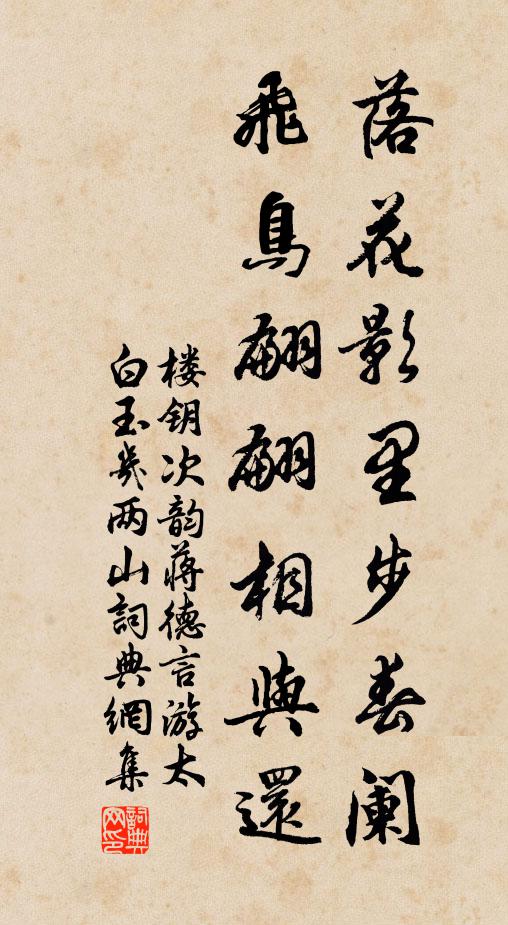 落花影里步春阑
飛鳥翩翩相與還
楼钥次韵蒋德言游太
白玉幾两山詞典網集
詞典网印